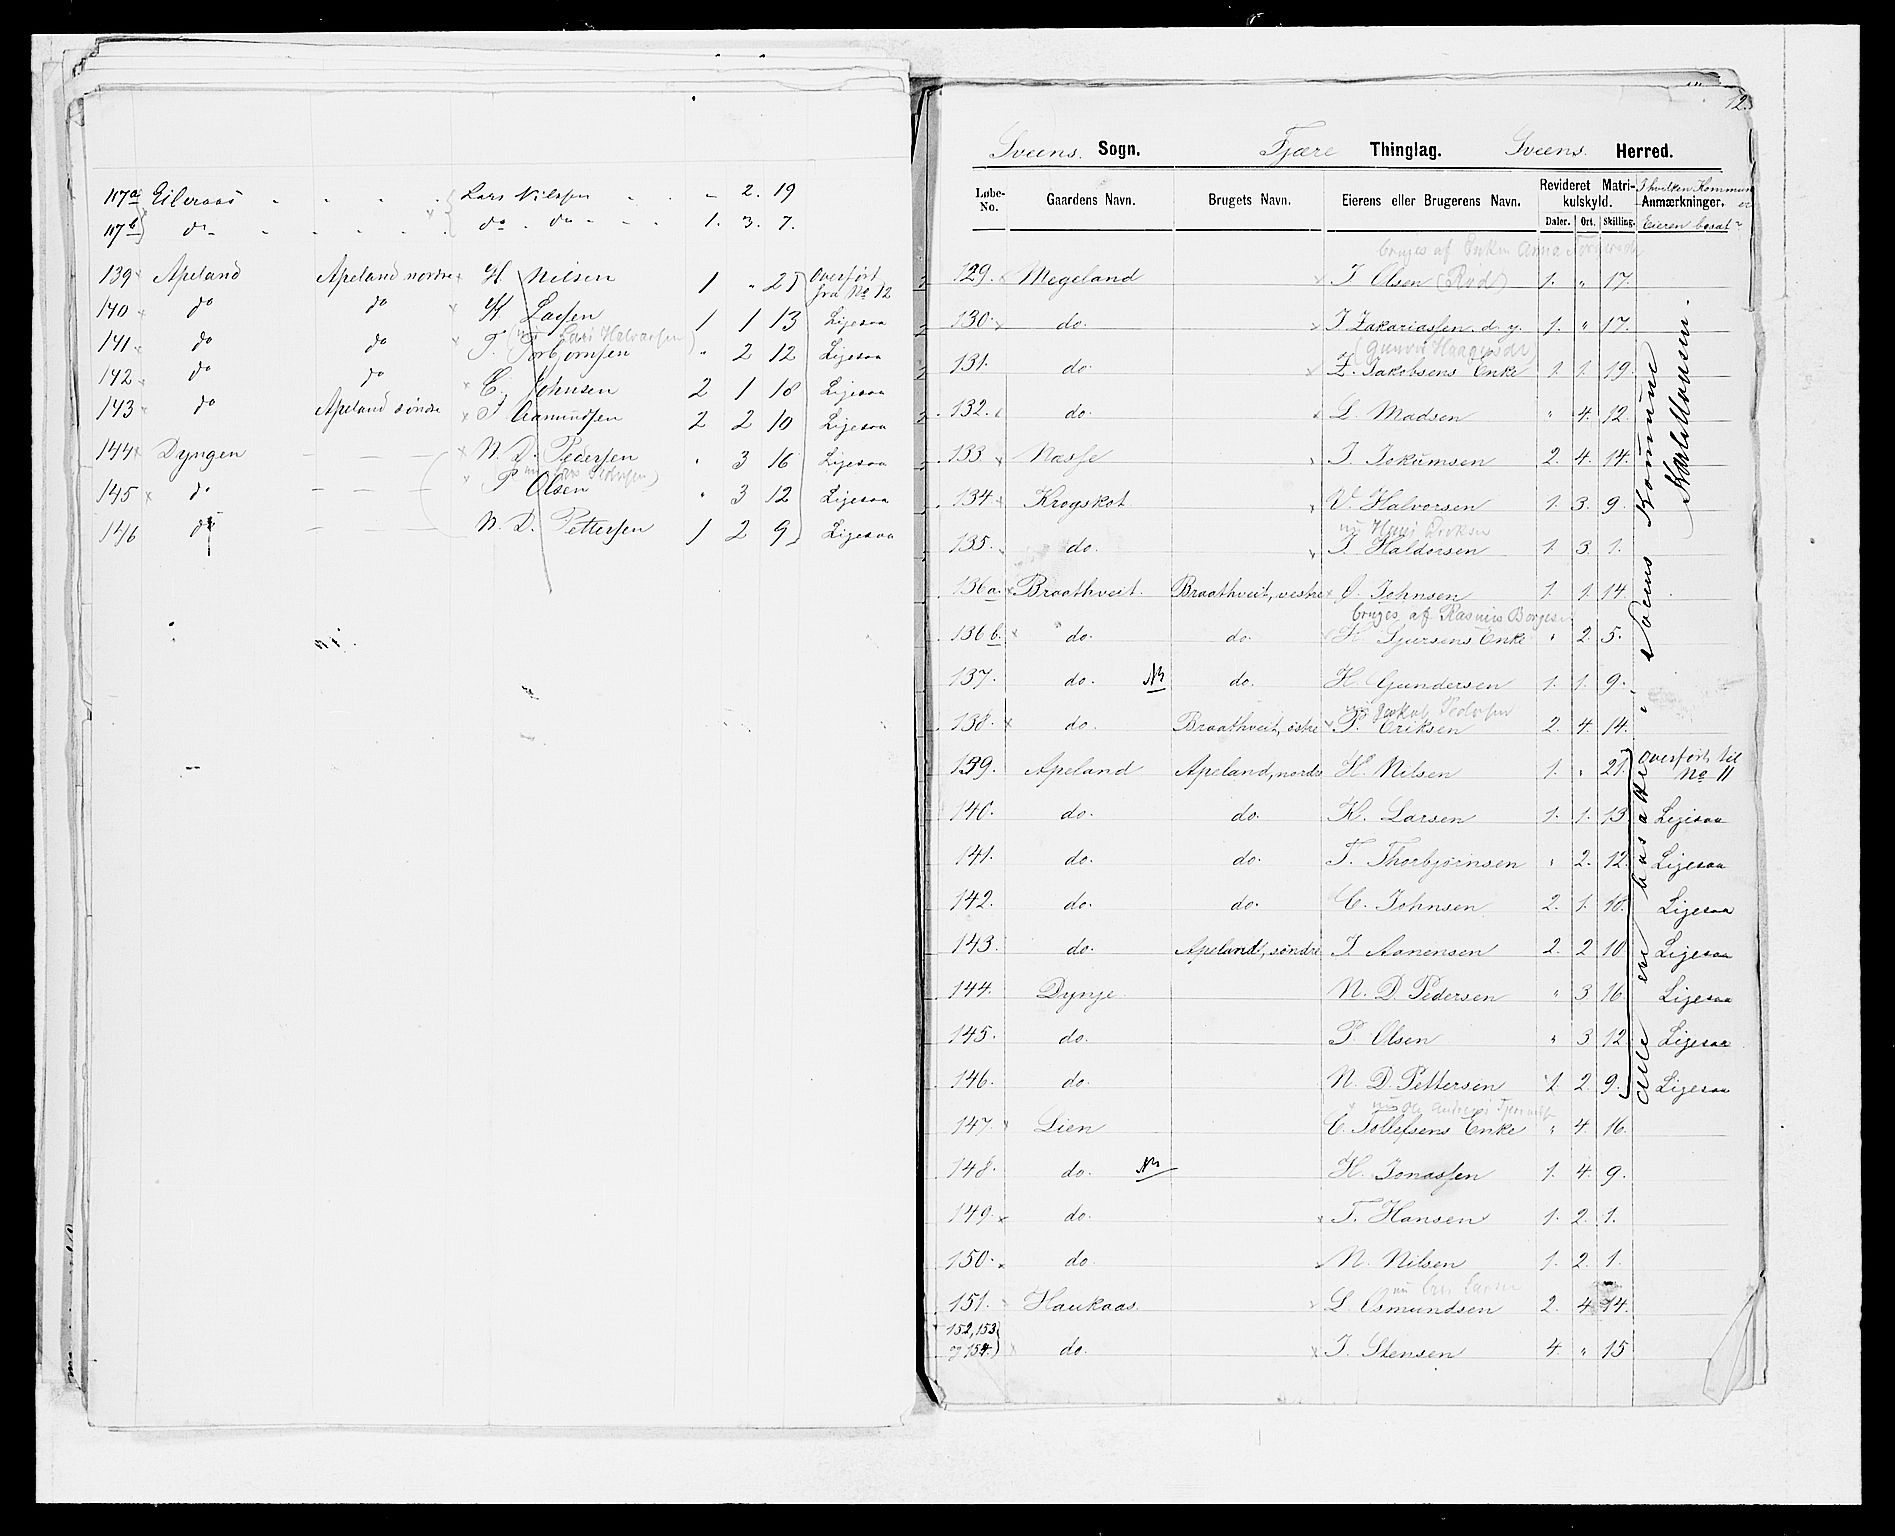 117a Eileraas " " " " Lars Nilssen " " " 2. 19
117b do " " " " " do " do " " 1. 3. 7.
139 Apeland Apeland nordre H. Nilsen 1 " 21 Overført fra No 12
140 do do K Larsen 1 1 13 Ligesaa
(nu Lars Halvorsen)
141 do do T. Torbjørnsen " 2 12 Ligesaa
142 do do C. Johnsen 2 1 18 Ligesaa
143 do Apeland søndre I Aanundsen 2 2 10 Ligesaa
144 Dyngen — — — N. D. Pedersen " 3 16 Ligesaa
145 do — — — P Olsen " 3 12 Ligesaa
146 do — — N. D. Pettersen 1 2 9 Ligesaa
12.
Sveens Sogn. Fjære Thinglag. Sveens Herred.
Løbe-No. Gaardens Navn. Brugets Navn. Eierens eller Brugerens Navn. Revideret Matrikulskyld. Daler. Ort. Skilling. Anmærkninger.
I hvilken Kommune er Eieren bosat?
bruges af Enken Anna
129. Megeland I Olsen (Rød) 1. " 17.
130. do. I Zakariassen d. y. 1. " 17.
131. do. Z. Jakobsens Enke 1. 1. 19.
132. do. L. Madsen " 4. 12.
133 Næsse I. Jokumsen 2. 4. 14.
134 Krogskot V. Halvorsen 1. 3. 9.
135. do. I. Haldorsen 1. 3. 1.
136a. Braathveit. Braathveit, vestre O. Johnsen 1. 1. 14
bruges af Rasmus Børgesen
136b. do. do. K Sjursens Enke " 2. 5.
137. do. do. H. Gundersen 1. 1. 9.
138. do. Braathveit, østre P. Eriksen 2. 4. 14.
139. Apeland Apeland, nordre H. Nilsen 1. " 21. overført til No 11
140. do. do. K. Larsen 1. 1. 13. Ligesaa
141. do. do. T. Thorbjørnsen " 2. 12. Ligesaa
142. do. do. C. Johnsen 2. 1. 18. Ligesaa
143. do. Apelandt, søndre I Aanensen 2. 2 10 Ligesaa
144. Dynje. N. D. Pedersen " 3 16 Ligesaa
145. do. P. Olsen " 3 12 Ligesaa
146. do. N. D. Pettersen 1 2. 9. Ligesaa
147. Lien C. Tollefsens Enke " 4. 16.
148. do. H. Jonassen 1. 4. 9.
149. do. T. Hansen 1. 2. 1.
150. do. N. Nilsen 1. 2. 1.
151. Haukaas L Osmundsen 2. 4 14.
152, 153 og 154. do. I. Stensen 4. " 15
alle er bosatte i Sveens Kommune